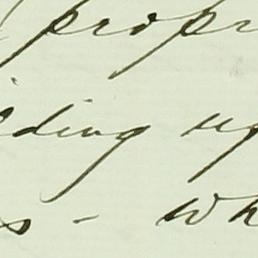 prop
ding up
s - wh